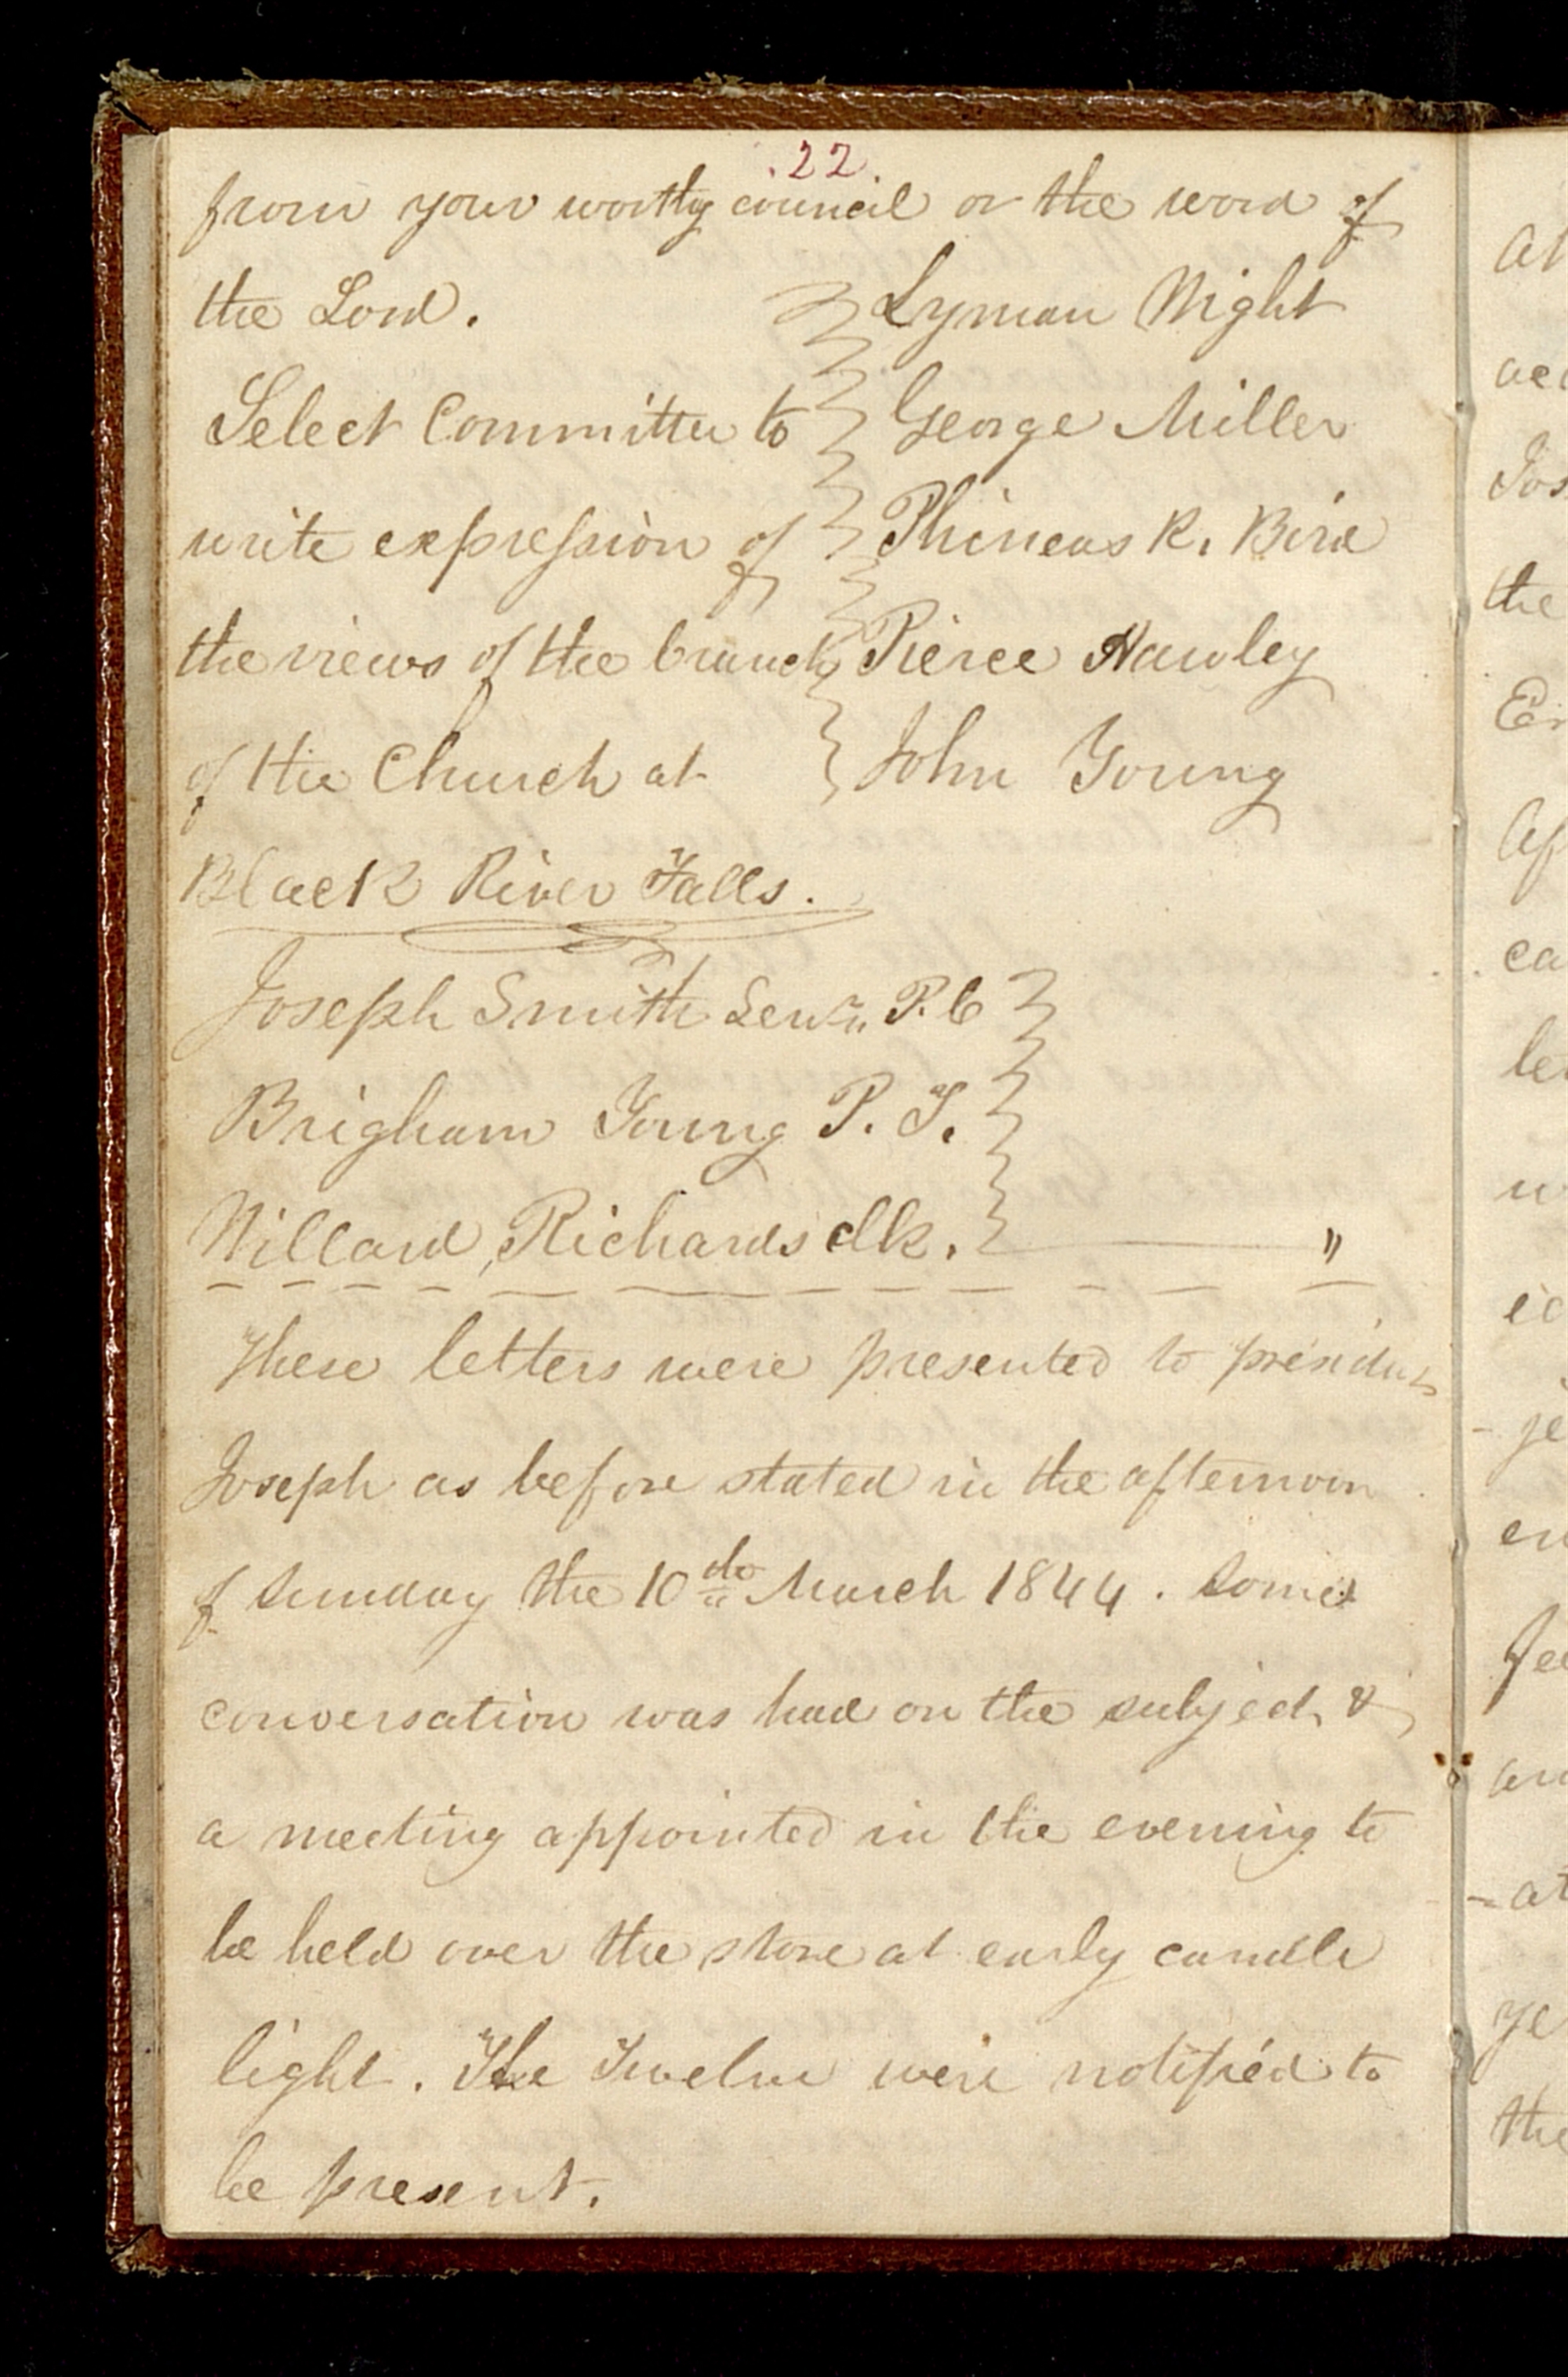 .22.
from your worthy council or the word of
the Lord. Lyman Wight
Select Committee to George Miller
write expression of Phineas R. Bird
the views of the branch Pierce Hawley
of the Church at John Young
Black River Falls.
Joseph Smith Senr. P. C
Brigham Young P. T.
Willard, Richards clk. "
These letters were presented to president
Joseph as before stated in the afternoon
of Sunday the 10th March 1844. Some
conversation was had on the subject, &
a meeting appointed in the evening to
be held over the store at early candle
light. The Twelve were notified to
be present.